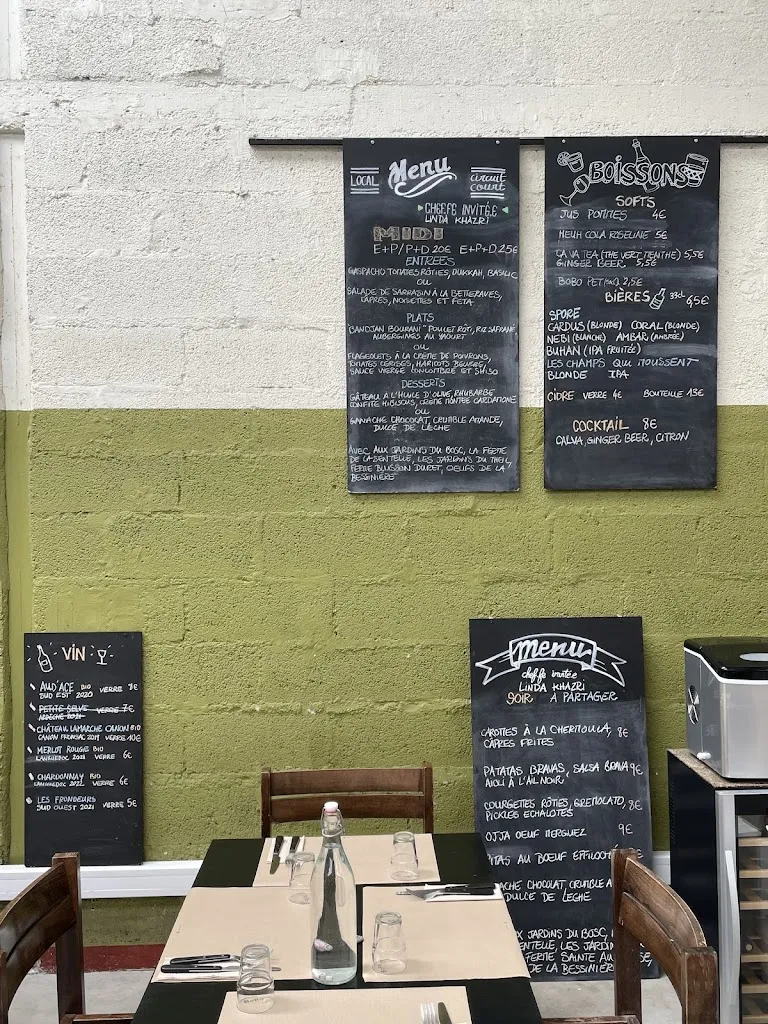 LOCAL
Menu
circuit court
CHEF.FE INVITÉ.E
LINDA KHAZRI
MIDI
E+P/P+D 20€ E+P+D 25€
ENTRÉES
GASPACHO TOMATES RÔTIES, DUKKAH, BASILIC
OU
SALADE DE SARRASIN À LA BETTERAVES,
CÂPRES, NOISETTES ET FETA
PLATS
"BANDJAN BOURANI" POULET RÔTI, RIZ SAFRANÉ
AUBERGINES AU YAOURT
OU
FLAGEOLETS À LA CRÈME DE POIVRONS,
TOMATES CERISES, HARICOTS BEURRE,
SAUCE VIERGE CONCOMBRE ET SHISO
DESSERTS
GÂTEAU À L'HUILE D'OLIVE, RHUBARBE
CONFITE HIBISCUS, CRÈME MONTÉE CARDAMOME
OU
GANACHE CHOCOLAT, CRUMBLE AMANDE,
DULCE DE LECHE
AVEC AUX JARDINS DU BOSC, LA FERME
DE LA SENTELLE, LES JARDINS DU THEIL,
FERME BUISSON DURET, OEUFS DE LA
BESSINIÈRE
BOISSONS
SOFTS
JUS POMMES 4€
MEUH COLA ROSELINE 5€
ÇA VA TEA (THÉ VERT MENTHE) 5,5€
GINGER BEER 5,5€
BOBO PET 2,5€
BIÈRES 33cl 6,5€
SPORE
CARDUS (BLONDE) CORAL (BLONDE)
NEBI (BLANCHE) AMBAR (AMBRÉE)
BUHAN (IPA FRUITÉE)
LES CHAMPS QUI MOUSSENT
BLONDE IPA
CIDRE VERRE 4€ BOUTEILLE 13€
COCKTAIL 8€
CALVA, GINGER BEER, CITRON
VIN
AUD'ACE BIO
SUD EST 2020 VERRE 7€
PETITE SELVE VERRE 7€
ARDÈCHE 2021
CHÂTEAU LAMARCHE CANON BIO
CANON FRONSAC 2019 VERRE 10€
MERLOT ROUGE BIO
LANGUEDOC 2021 VERRE 6€
CHARDONNAY BIO
LANGUEDOC 2022 VERRE 6€
LES FRONDEURS
SUD OUEST 2021 VERRE 5€
menu
chef.fe invité.e
LINDA KHAZRI
SOIR À PARTAGER
CAROTTES À LA CHERMOULA, 8€
CÂPRES FRITES
PATATAS BRAVAS, SALSA BRAVA 9€
AIOLI À L'AIL NOIR
COURGETTES RÔTIES, GREMOLATO, 8€
PICKLES ECHALOTES
OJJA OEUF MERGUEZ 9€
PITAS AU BOEUF EFFILOC
ACHE CHOCOLAT, CRUMBLE A
DULCE DE LECHE
X JARDINS DU BOSC,
ENTELLE, LES JARDIN
FERME SAINTE AU
DE LA BESSINIÈR